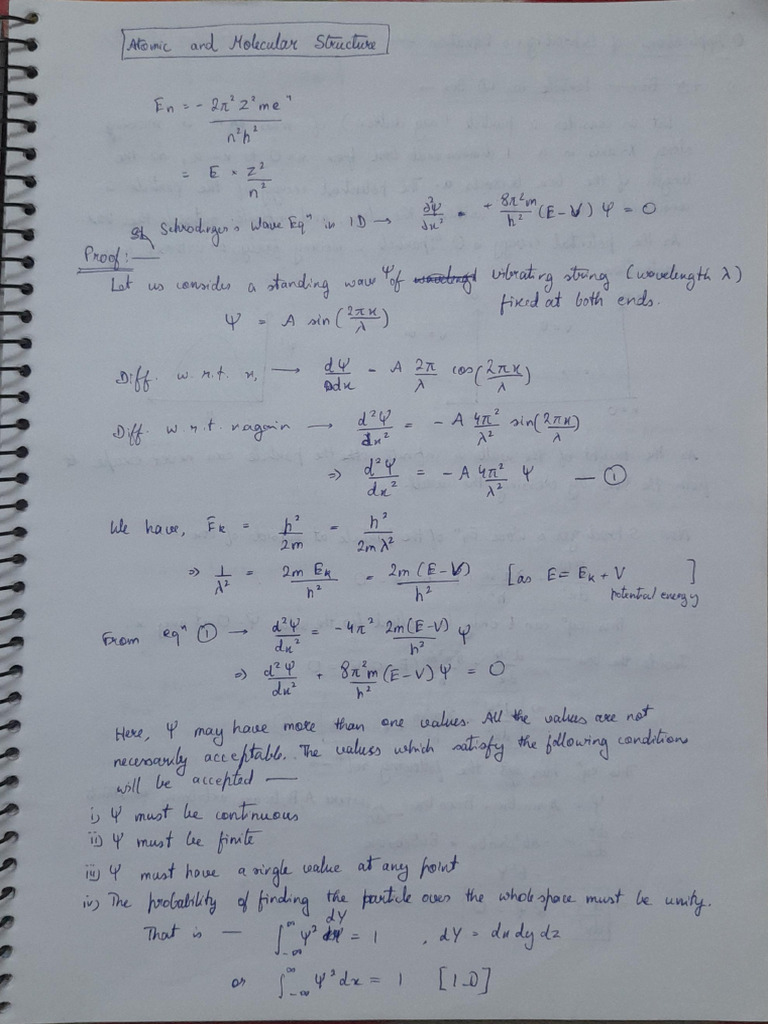 Atomic and Molecular Structure
En = - 2π²Z²me⁴ / n²h²
= E × Z²/n²
Schrodinger's Wave Eqⁿ in 1D → ∂²Ψ/∂x² + 8π²m/h² (E-V) Ψ = 0
Proof:—
Let us consider a standing wave Ψ of vibrating string (wavelength λ)
fixed at both ends.
Ψ = A sin(2πx/λ)
Diff. w.r.t. x, → dΨ/dx - A 2π/λ cos(2πx/λ)
Diff. w.r.t. x again → d²Ψ/dx² = -A 4π²/λ² sin(2πx/λ)
⇒ d²Ψ/dx² = -A 4π²/λ² Ψ — ①
We have, Ek = p²/2m = h²/2mλ²
⇒ 1/λ² = 2m Ek/h² = 2m(E-V)/h² [as E = Ek + V]
potential energy
From eqⁿ ① → d²Ψ/dx² = -4π² 2m(E-V)/h² Ψ
⇒ d²Ψ/dx² + 8π²m/h² (E-V) Ψ = 0
Here, Ψ may have more than one values. All the values are not
necessarily acceptable. The values which satisfy the following condition
will be accepted —
i) Ψ must be continuous
ii) Ψ must be finite
iii) Ψ must have a single value at any point
iv) The probability of finding the particle over the whole space must be unity.
That is — ∫₋∞^∞ Ψ² dY = 1 , dY = dx dy dz
or ∫₋∞^∞ Ψ² dx = 1 [1-D]